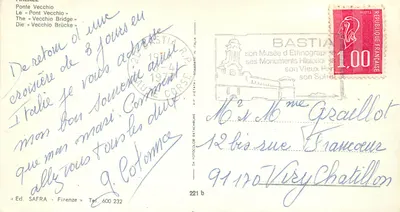 FIRENZE
Ponte Vecchio
Le «Pont Vecchio»
The «Vecchio Bridge»
Die «Vecchio Brücke»
De retour d'une
croisière de 8 jours en
Italie je vous adresse
mon bon souvenir ainsi
que mon mari. Comment
allez vous tous les deux.
G Colonna
«Ed. SAFRA - Firenze» Tel. 600 232
221 b
BASTIA
BASTIA
son Musée d'Ethnographie
ses Monuments Histori
son Vieux Port
REPUBLIQUE FRANÇAISE
1.00
Mr & Mme Graillot
12 bis rue Francœur
91170 Viry Chatillon